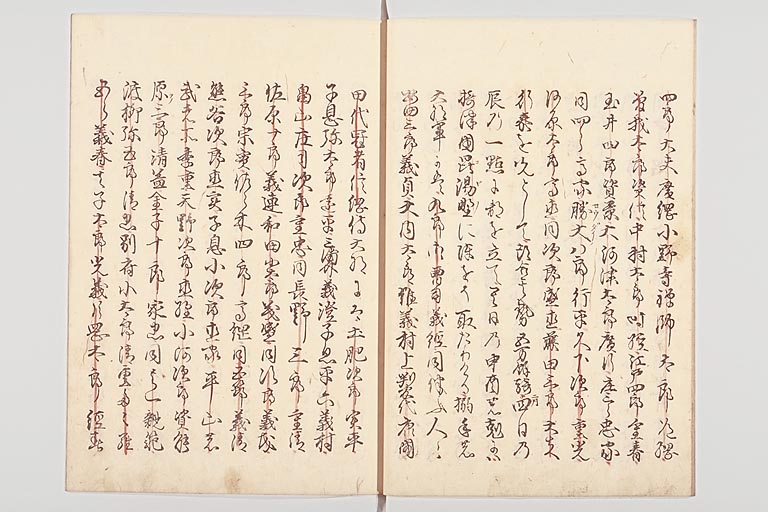 四郎大夫広綱小野寺禅師太郎道綱
曽我太郎資信中村太郎時経江戸四郎重春
玉井四郎資景大河津太郎広行庄三郎忠家
同四郎高家勝大八郎行平久下次郎重光
河原太郎高直同次郎盛直藤田三郎大夫
行泰を先として都合其勢五万余騎四日の
辰の一点に都を立て其日の申酉の剋に
摂津国昆陽野に陣をそ取たりける搦手の
大将軍には九郎御曹司義経同伴ふ人々
安田三郎義貞大内太郎惟義村上判官代康国
田代冠者信綱侍大将には土肥次郎実平
子息弥太郎遠平三浦介義澄子息平六義村
畠山庄司次郎重忠同長野三郎重清
佐原十郎義連和田小太郎義盛同次郎義茂
三郎宗実佐々木四郎高綱同五郎義清
熊谷次郎直実子息小次郎直家平山武者所
季重天野次郎直経小河次郎資能
原三郎清益金子十郎家忠同与一親範
渡柳弥五郎清忠別府小太郎清重多々羅
五郎義春其子太郎光義片岡太郎経春